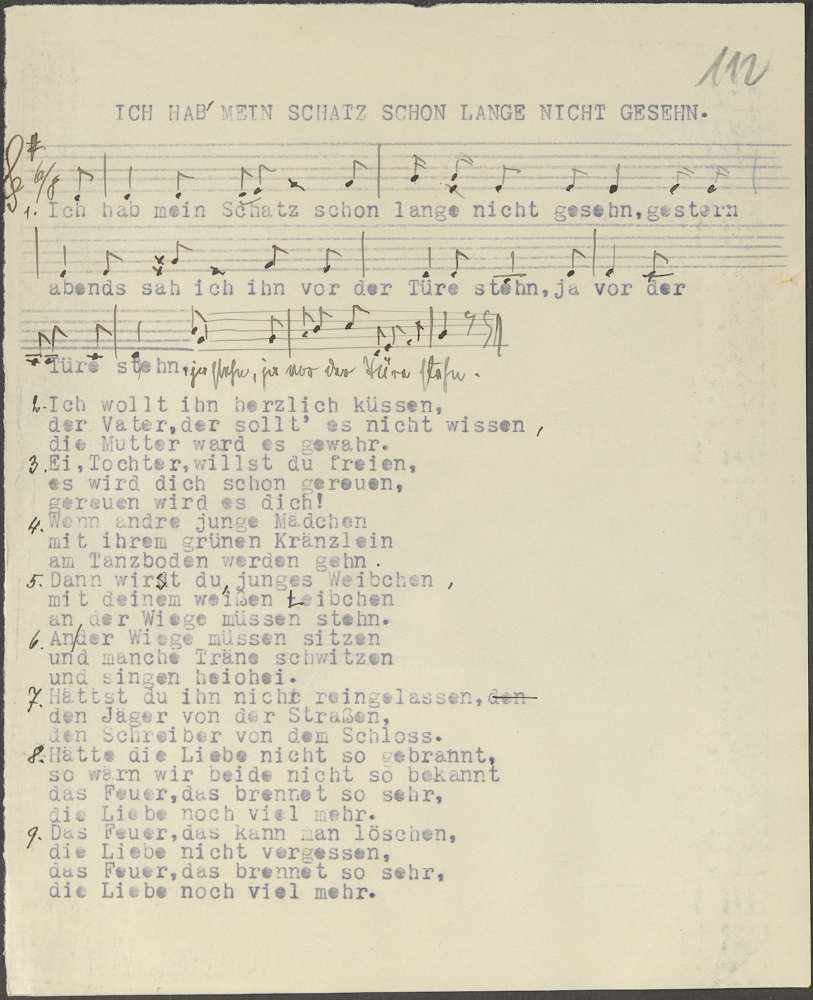 112
ICH HAB' MEIN SCHATZ SCHON LANGE NICHT GESEHN.
6/8
1. Ich hab mein Schatz schon lange nicht gesehn, gestern
abends sah ich ihn vor der Türe stehn, ja vor der
Türe stehn, ja stehn, ja vor der Türe stehn.
2. Ich wollt ihn herzlich küssen,
der Vater,der sollt' es nicht wissen,
die Mutter ward es gewahr.
3. Ei,Tochter,willst du freien,
es wird dich schon gereuen,
gereuen wird es dich!
4. Wenn andre junge Mädchen
mit ihrem grünen Kränzlein
am Tanzboden werden gehn.
5. Dann wirst du, junges Weibchen,
mit deinem weißen Leibchen
an der Wiege müssen stehn.
6. An/der Wiege müssen sitzen
und manche Träne schwitzen
und singen heiohei.
7. Hättst du ihn nicht reingelassen, den
den Jäger von der Straßen,
den Schreiber von dem Schloss.
8. Hätte die Liebe nicht so gebrannt,
so wärn wir beide nicht so bekannt
das Feuer,das brennet so sehr,
die Liebe noch viel mehr.
9. Das Feuer,das kann man löschen,
die Liebe nicht vergessen,
das Feuer,das brennet so sehr,
die Liebe noch viel mehr.